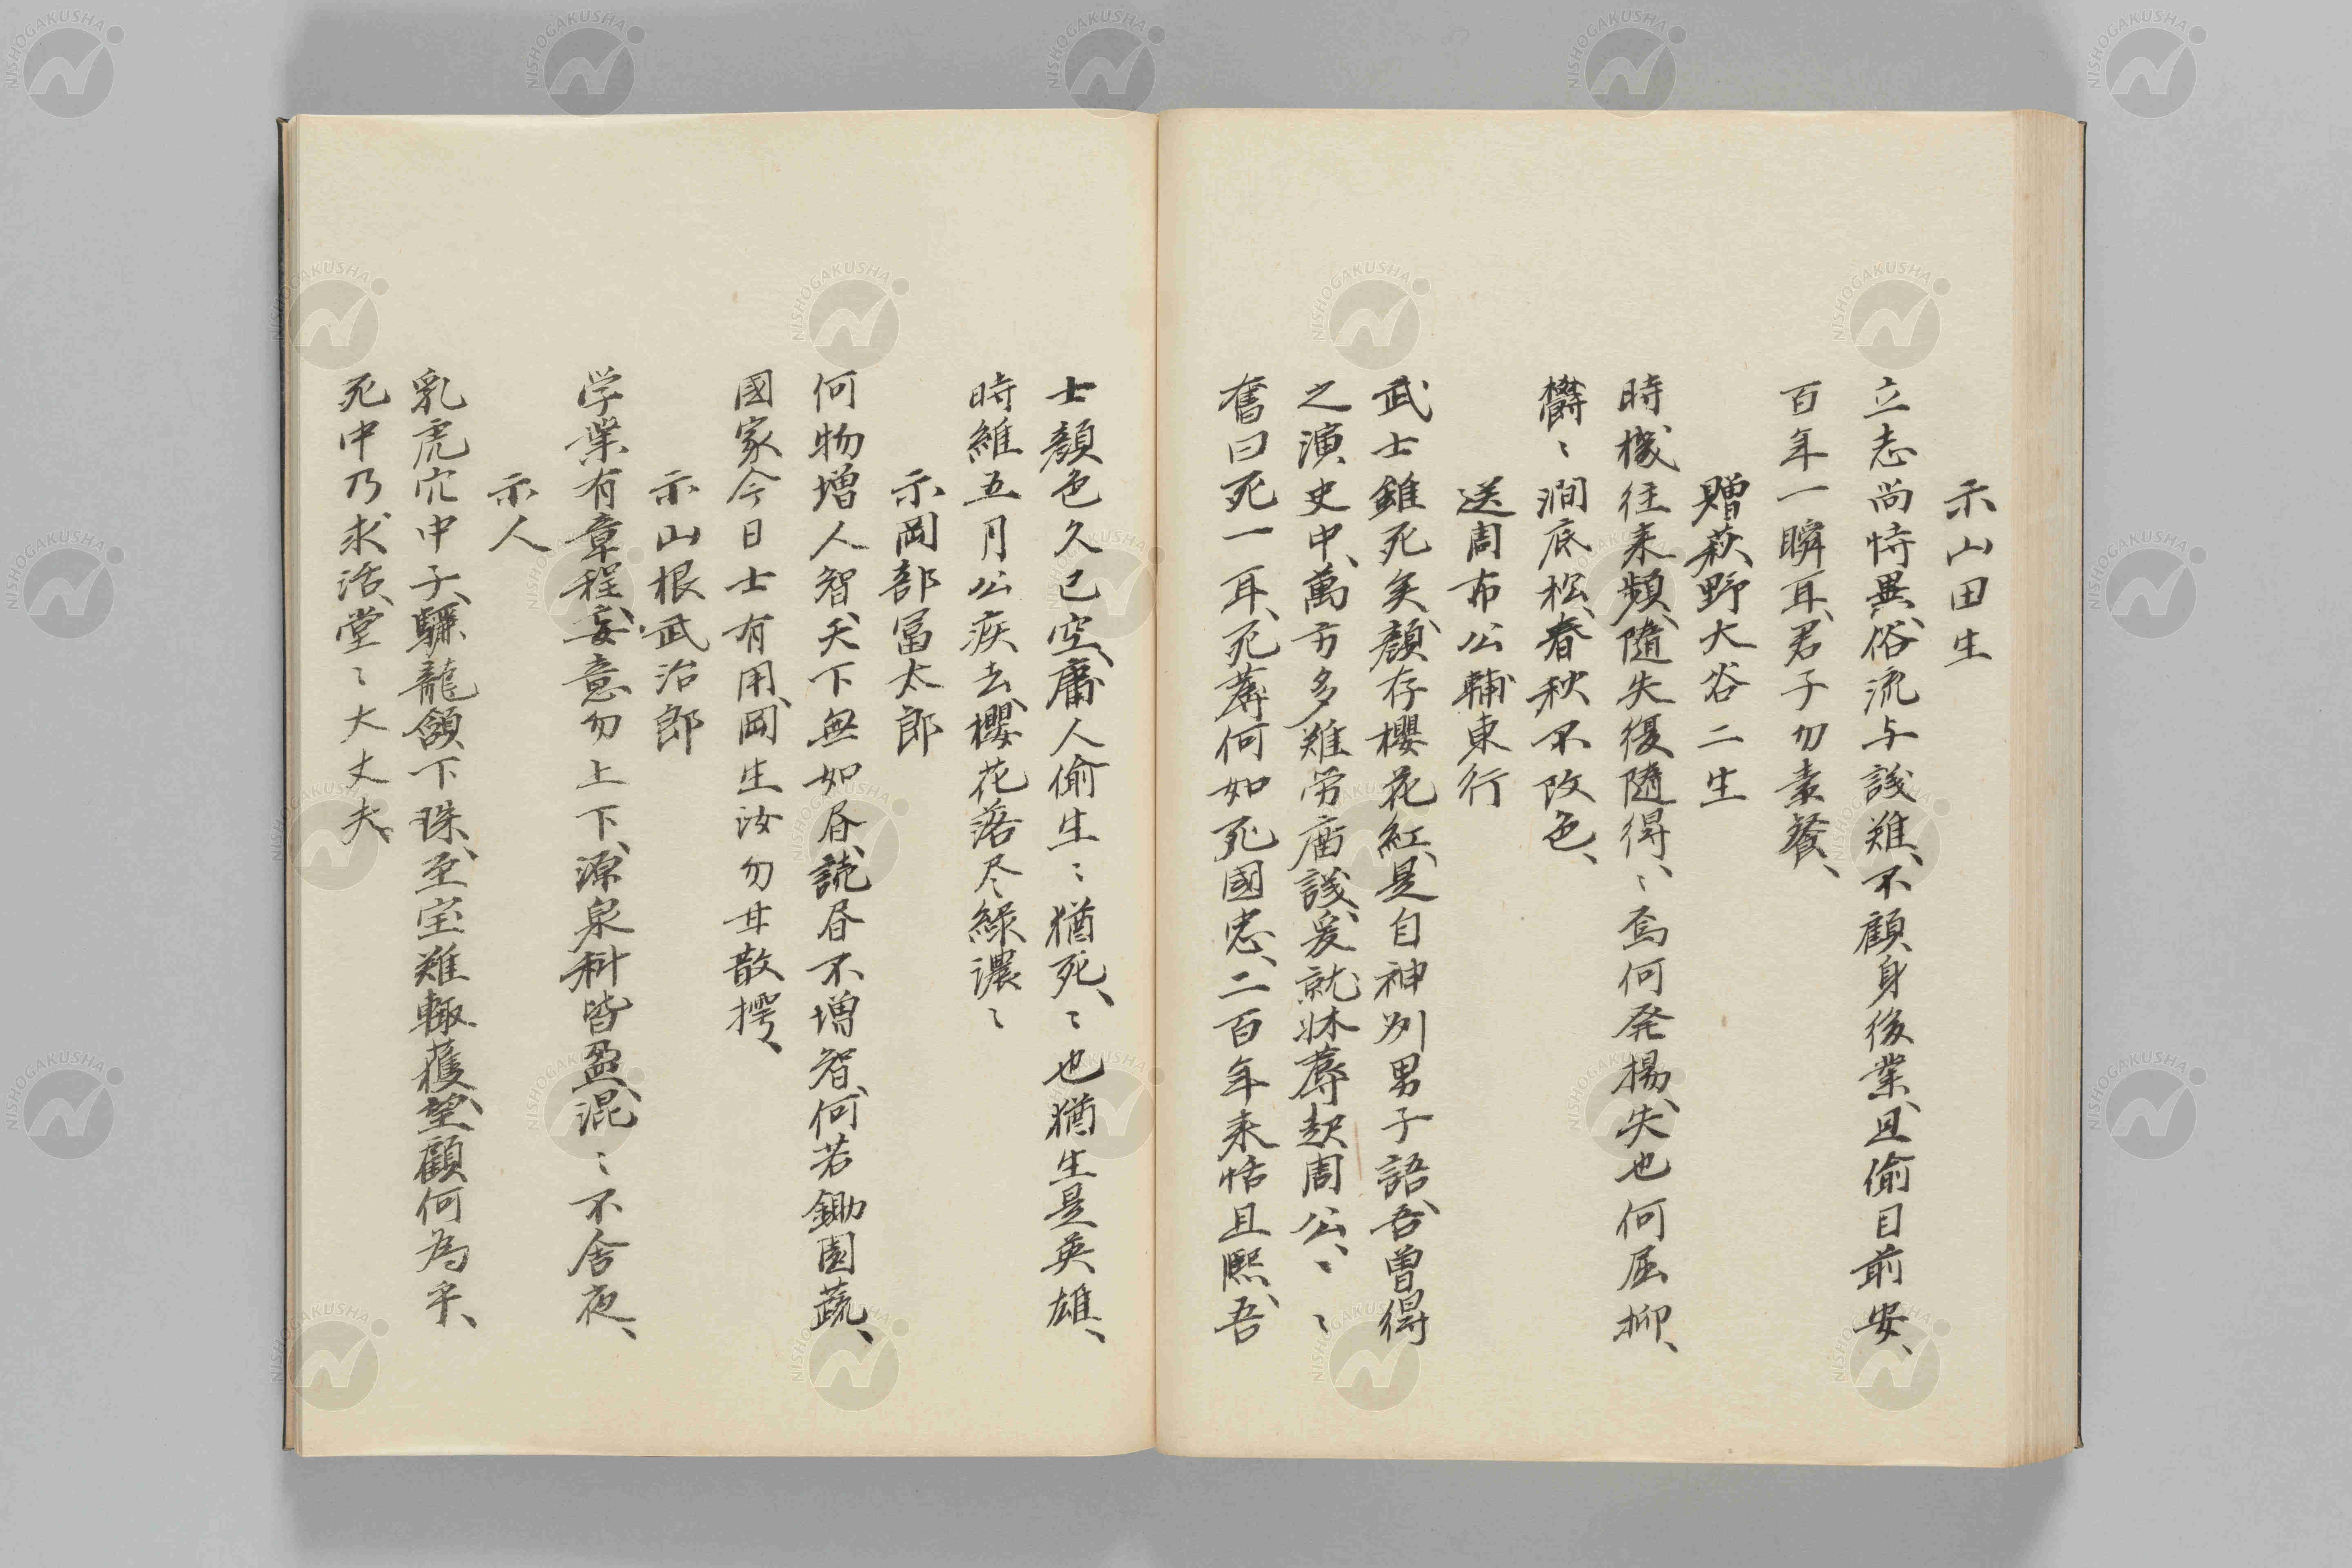 示山田生
立志尚恃異、俗流与議難、不顧身後業、且偷目前安、
百年一瞬耳、君子勿素餐、
贈萩野大谷二生
時機往来頻、隨失復隨得、〻焉何発揚、失也何屈抑、
欝〻澗底松、春秋不改色、
送周布公輔東行
武士雖死矣、顏存櫻花紅、是自神州男子語、吾曽得
之演史中、萬方多難労庿議、爰就牀蓐起周公、〻〻
奮曰死一耳、死蓐何如死國忠、二百年来恬且熙、吾
士顏色久已空、庸人偷生〻猶死、〻也猶生是英雄、
時維五月公疾去、櫻花落尽綠濃〻
示岡部冨太郎
何物増人智、天下無如昏、読昏不増智、何若鋤園蔬、
國家今日士有用、岡生汝勿甘散樗、
示山根武治郎
学業有章程、妄意勿上下、源泉科皆盈、混〻不舎夜、
示人
乳虎穴中子、驪龍頷下珠、至宝難輙獲、望顧何為乎、
死中乃求活、堂〻大丈夫、
NISHOGAKUSHA